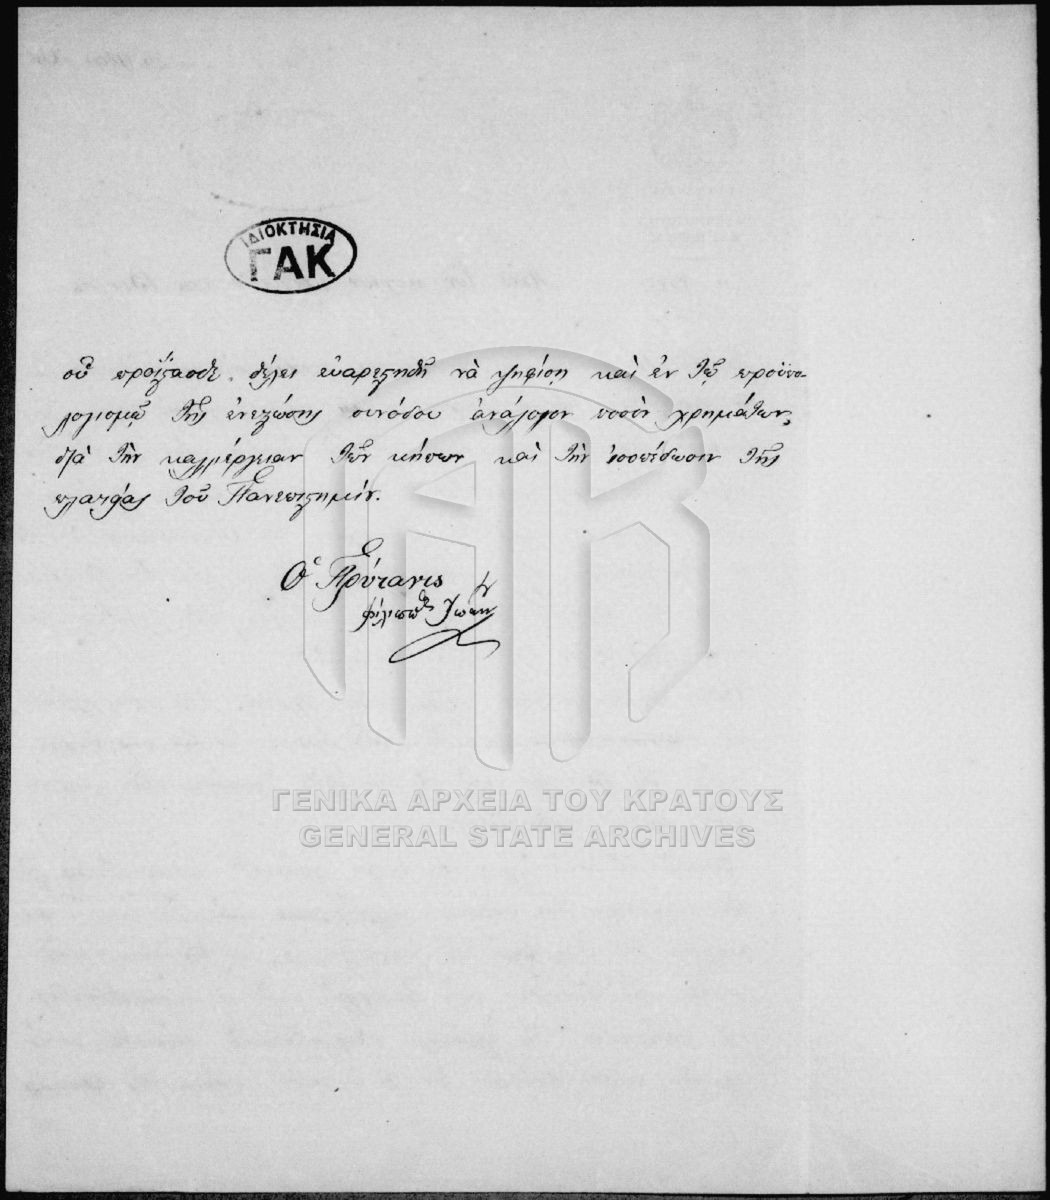 ΙΔΙΟΚΤΗΣΙΑ
ΓΑΚ
οὗ προΐστασθε, θέλει εὐαρεστηθῆ νὰ ψηφίσῃ καὶ ἐν τῷ προϋπο-
λογισμῷ τῆς ἐνεστώσης συνόδου ἀνάλογον ποσὸν χρημάτων,
διὰ τὴν καλλιέργειαν τῶν κήπων καὶ τὴν ἰσοπέδωσιν τῆς
πλατείας τοῦ Πανεπιστημίου.
Ὁ Πρύτανις
Φίλιππος Ἰωάννου
ΓΕΝΙΚΑ ΑΡΧΕΙΑ ΤΟΥ ΚΡΑΤΟΥΣ
GENERAL STATE ARCHIVES